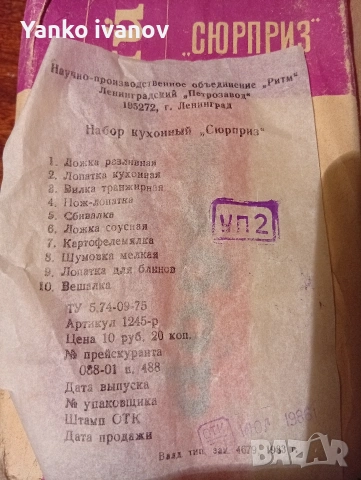 Yanko ivanov
ый
„СЮРПРИЗ"
Научно-производственное объединение „Ритм"
Ленинградский „Петрозавод"
195272, г. Ленинград
Набор кухонный „Сюрприз"
1. Ложка разливная
2. Лопатка кухонная
3. Вилка транжирная
4. Нож-лопатка
5. Сбивалка
6. Ложка соусная
7. Картофелемялка
8. Шумовка мелкая
9. Лопатка для блинов
10. Вешалка
УП2
ТУ 5.74-09-75
Артикул 1245-р
Цена 10 руб. 20 коп.
№ прейскуранта
088-01 п. 488
Дата выпуска
№ упаковщика
Штамп ОТК
Дата продажи
Влад. тип. зак. 4679 1983 г.
BAZAR